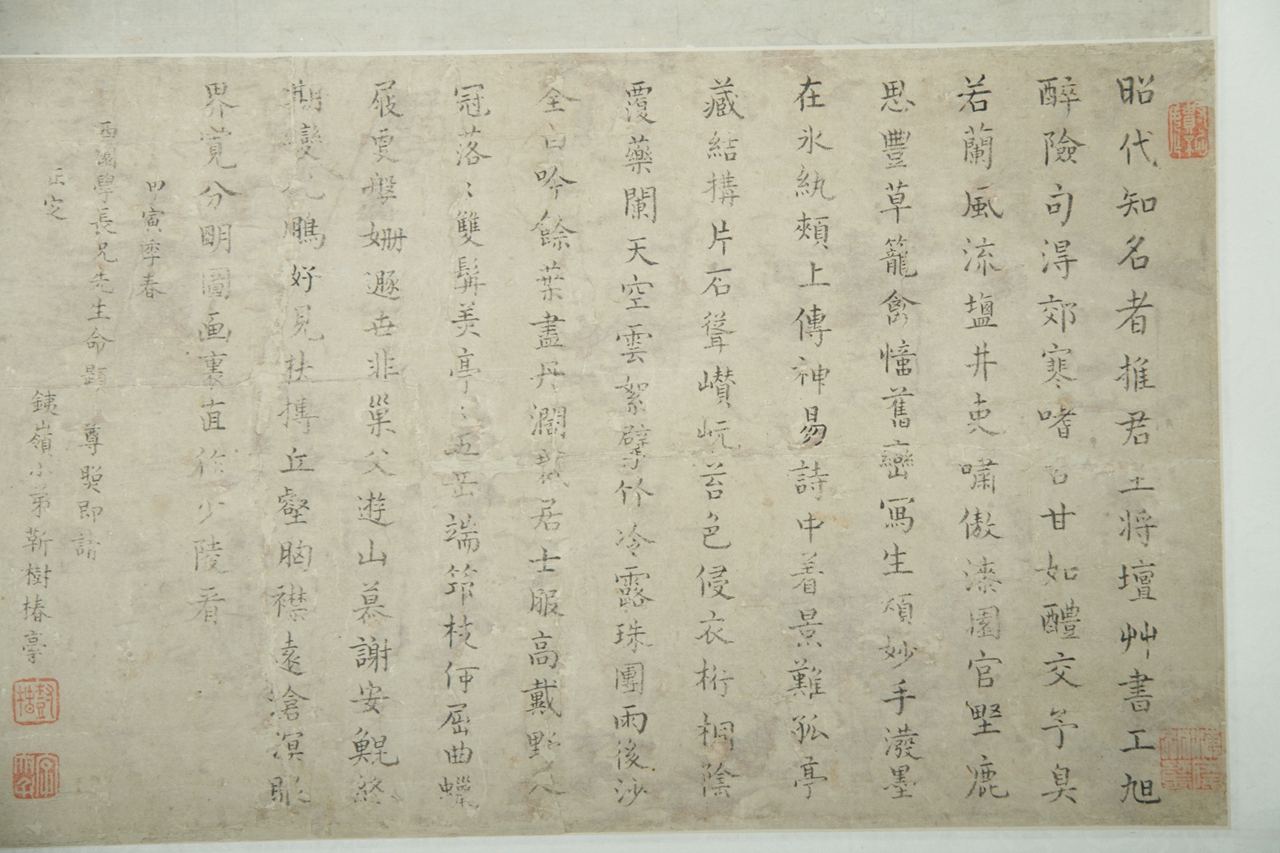 昭代知名者推君上將壇艸書工旭
醉險句淂郊寒嗜古甘如醴交予臭
若蘭風流塩井吏嘯傲漆園官野鹿
思豐草籠禽憶舊巒寫生煩妙手潑墨
在氷紈頰上傳神易詩中着景難孤亭
藏結搆片石聳巑岏苔色侵衣桁桐陰
覆藥闌天空雲絮擘竹冷露珠團雨後沙
全白吟餘葉盡丹瀾
居士服高戴野人
冠落〻雙髯美亭〻五岳端筇枝何屈曲蠟
屐更槃姗遯世非巢父遊山慕謝安鯤終
期變化鵬好見扶摶丘壑胸襟遠滄溟眼
界寛分明圖画裏直作少陵看
甲寅季春
西澗學長兄先生命題 尊照即請
正定
銕嶺小弟靳樹椿亭